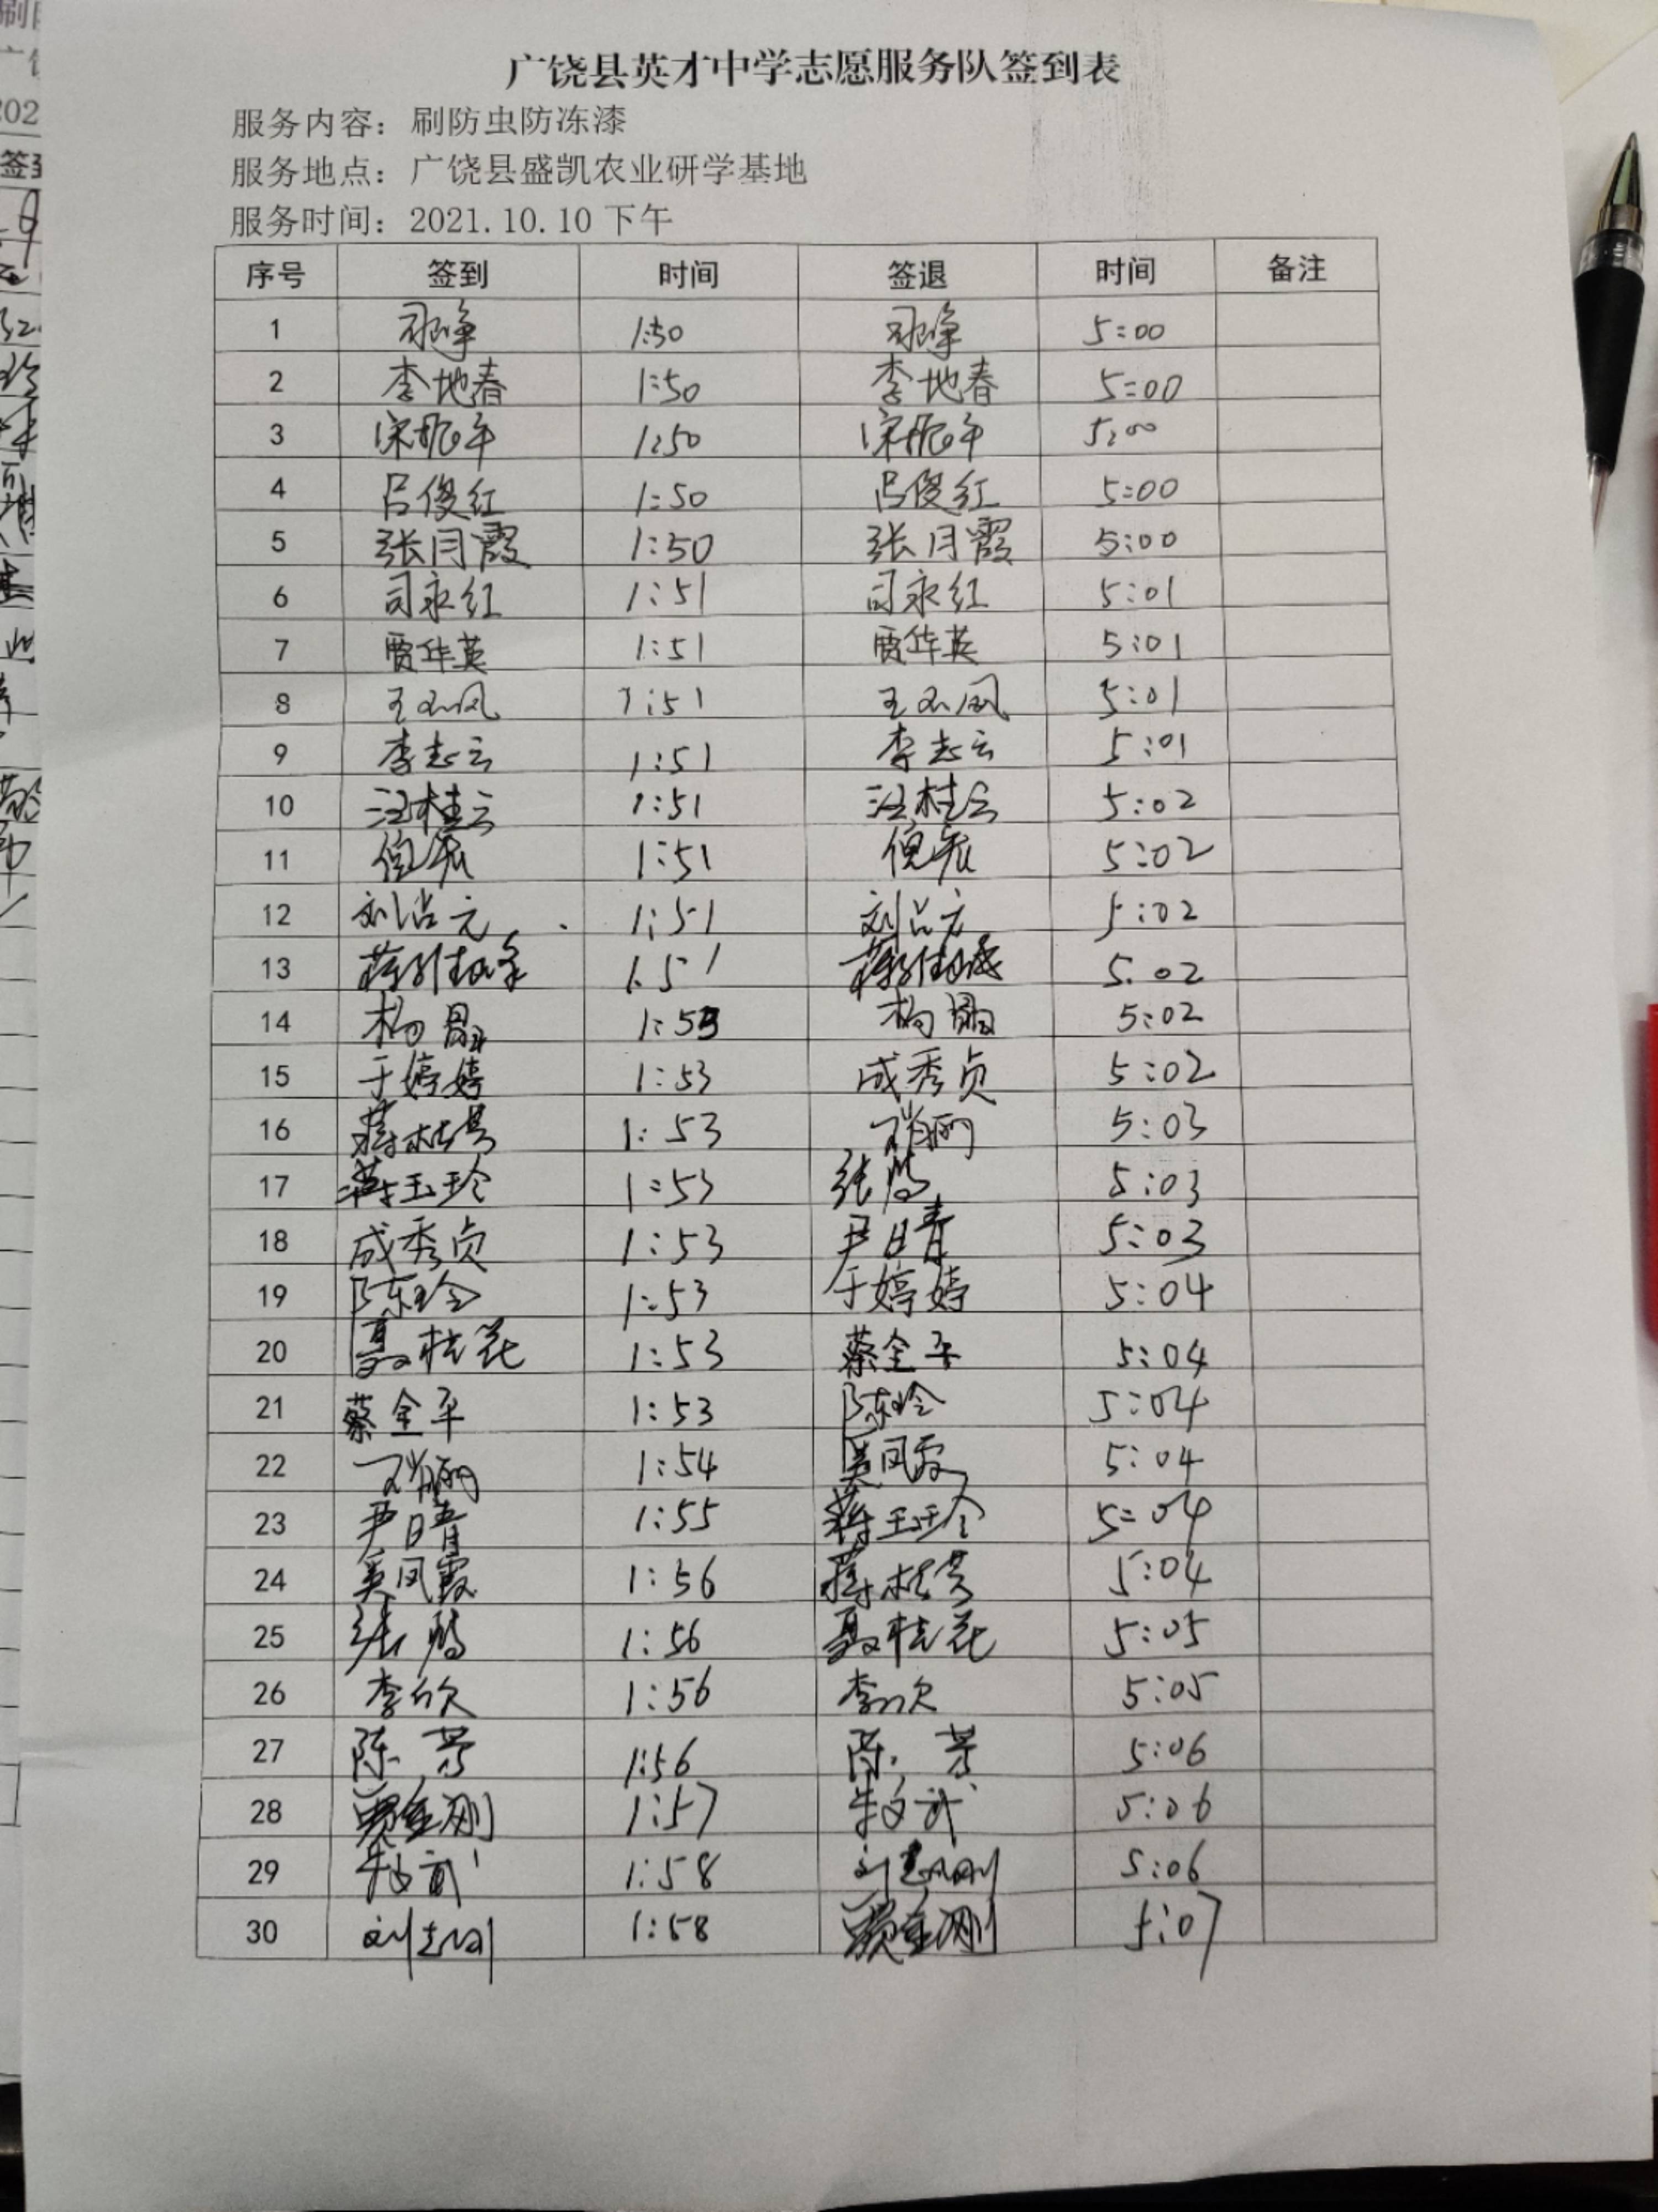 广饶县英才中学志愿服务队签到表
服务内容：刷防虫防冻漆
服务地点：广饶县盛凯农业研学基地
服务时间：2021.10.10下午
序号 签到 时间 签退 时间 备注
1 1:50 5:00
2 李地春 1:50 李地春 5:00
3 1:50 5:00
4 吕俊红 1:50 吕俊红 5:00
5 张月霞 1:50 张月霞 5:00
6 司永红 1:51 司永红 5:01
7 贾华英 1:51 贾华英 5:01
8 1:51 5:01
9 李志云 1:51 李志云 5:01
10 汪桂云 1:51 汪桂云 5:02
11 倪宏 1:51 倪宏 5:02
12 刘占元 1:51 刘占元 5:02
13 1:51 5:02
14 杨晶 杨晶 5:02
15 于婷婷 1:53 成秀贞 5:02
16 1:53 5:03
17 蒋玉珍 1:53 张鹏 5:03
18 成秀贞 1:53 尹晴 5:03
19 陈玲 1:53 于婷婷 5:04
20 聂桂花 1:53 蔡全平 5:04
21 蔡全平 1:53 陈玲 5:04
22 1:54 吴凤霞 5:04
23 尹晴 1:55 蒋玉珍 5:04
24 吴凤霞 1:56 5:04
25 张鹏 1:56 聂桂花 5:05
26 李欣 1:56 李欣 5:05
27 陈芳 1:56 陈芳 5:06
28 贾金刚 1:57 朱文武 5:06
29 朱文武 1:58 刘志刚 5:06
30 刘志刚 1:58 贾金刚 5:07